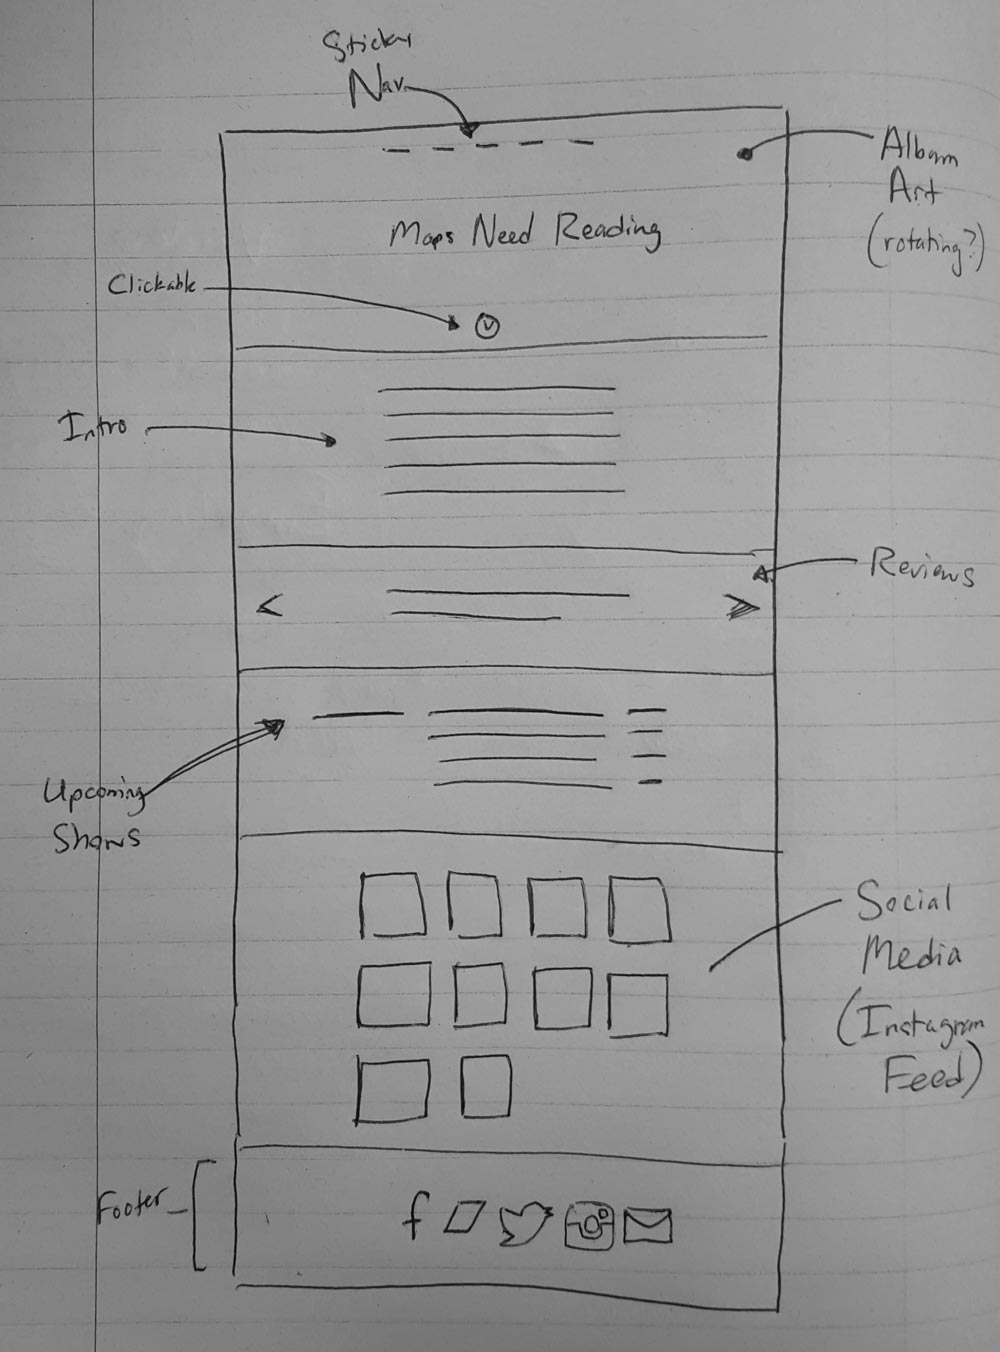 Sticky
Nav.
Album
Art
(rotating?)
Maps Need Reading
Clickable
Intro
Reviews
Upcoming
Shows
Social
Media
(Instagram
Feed)
Footer
f